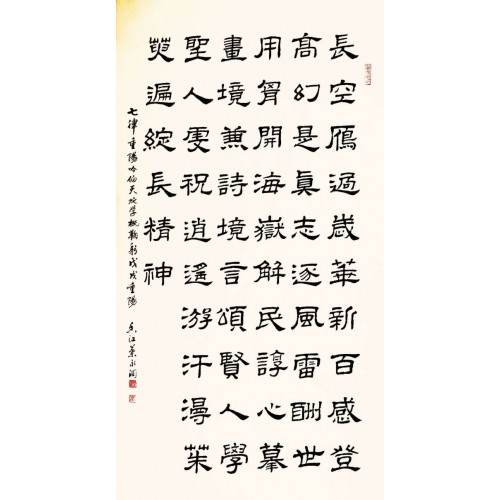 長空鴈過歲華新百感登
髙幻是真志逐風雷酬世
用胷開海嶽解民諄心摹
畫境兼詩境言頌賢人學
聖人祝逍遙游汗漫茱
萸遍綻長精神
七律重陽吟天戊戌重陽
香江葉永潤